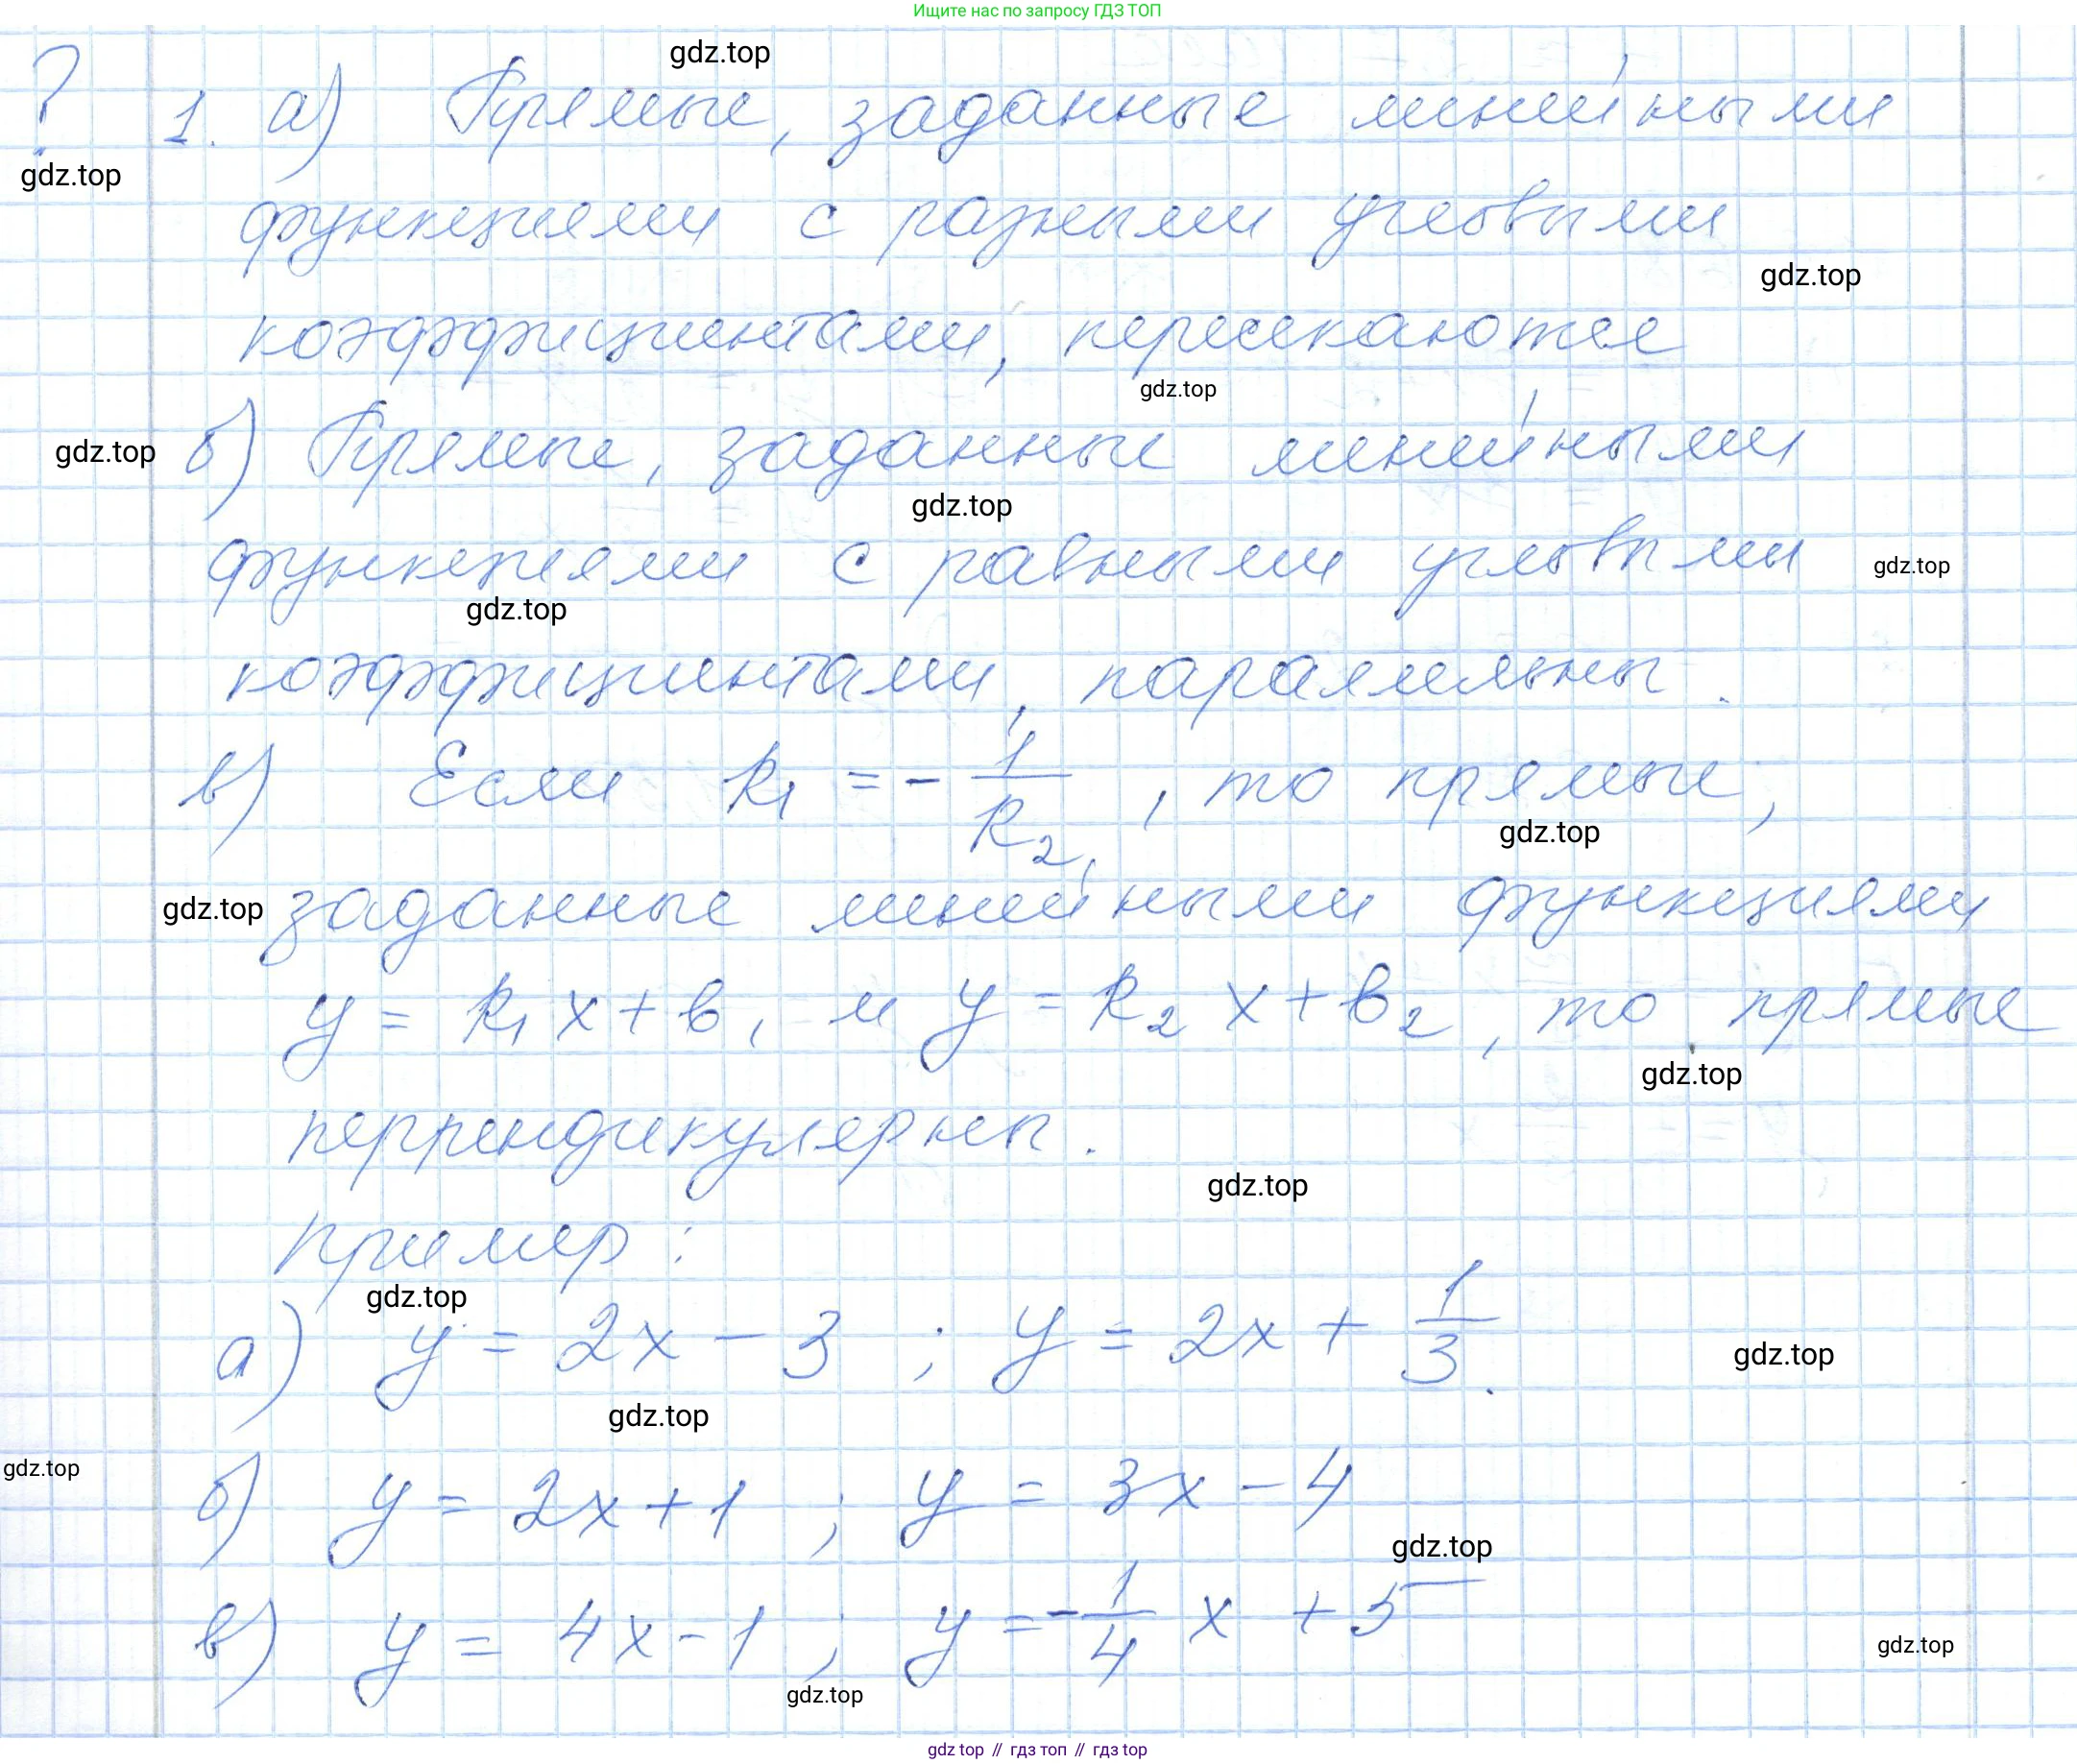 Ищите нас по запросу ГДЗ ТОП
gdz.top
? 1. а) Прямые, заданные линейными
gdz.top
функциями с разными угловыми
gdz.top
коэффициентами, пересекаются
gdz.top
gdz.top б) Прямые, заданные линейными
gdz.top
функциями с равными угловыми gdz.top
gdz.top
коэффициентами, параллельны.
в) Если k₁ = - 1/k₂, то прямые,
gdz.top
gdz.top заданные линейными функциями
y = k₁ x + b, и y = k₂ x + b₂, то прямые
gdz.top
перпендикулярны.
gdz.top
Пример:
gdz.top
а) y = 2x - 3 ; y = 2x + 1/3.
gdz.top
gdz.top
gdz.top
б) y = 2x + 1 ; y = 3x - 4
gdz.top
в) y = 4x - 1 ; y = - 1/4 x + 5
gdz.top
gdz.top
gdz top // гдз топ // гдз top